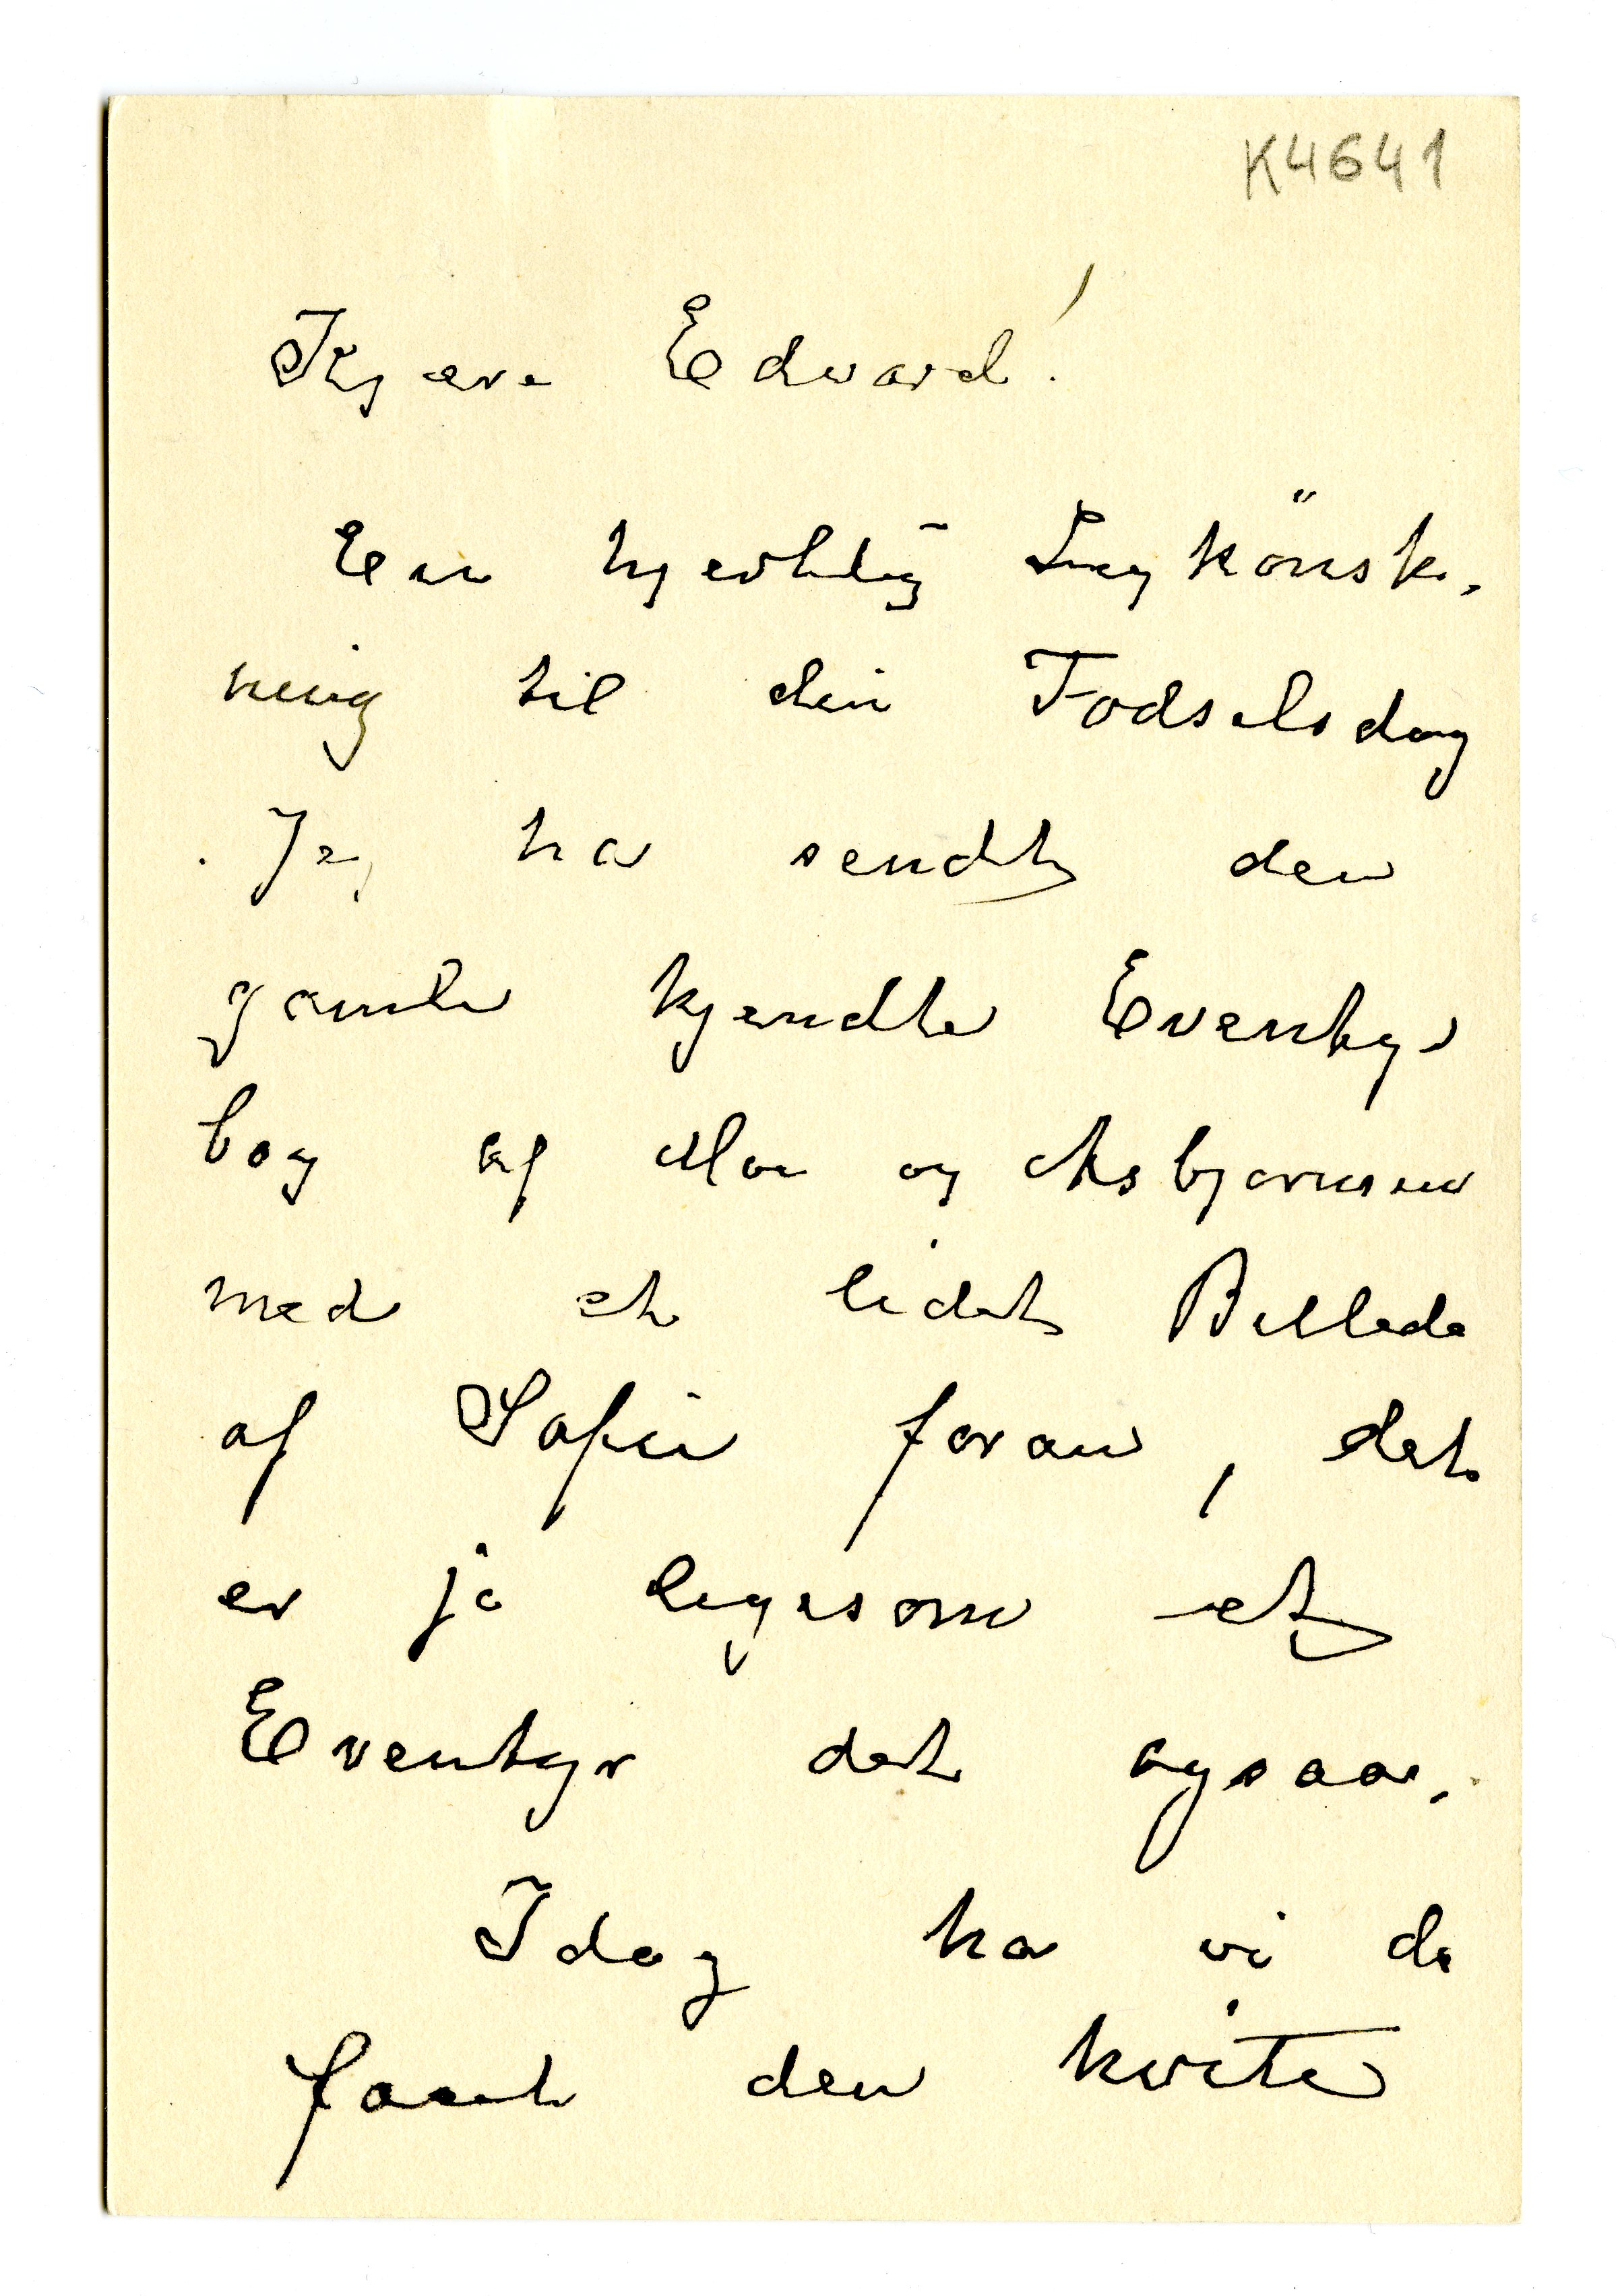 K4641
Kjære Edvard!
En hjertlig Lykönsk-
ning til din Fødselsdag
. Jeg har sendt den
gamle kjendte Eventyr
bog af Moe og Asbjørnsen
med et lidet Billede
af Sofie foran, det
er jo ligesom et
Eventyr det ogsaa.
Idag har vi da
faaet den hvite